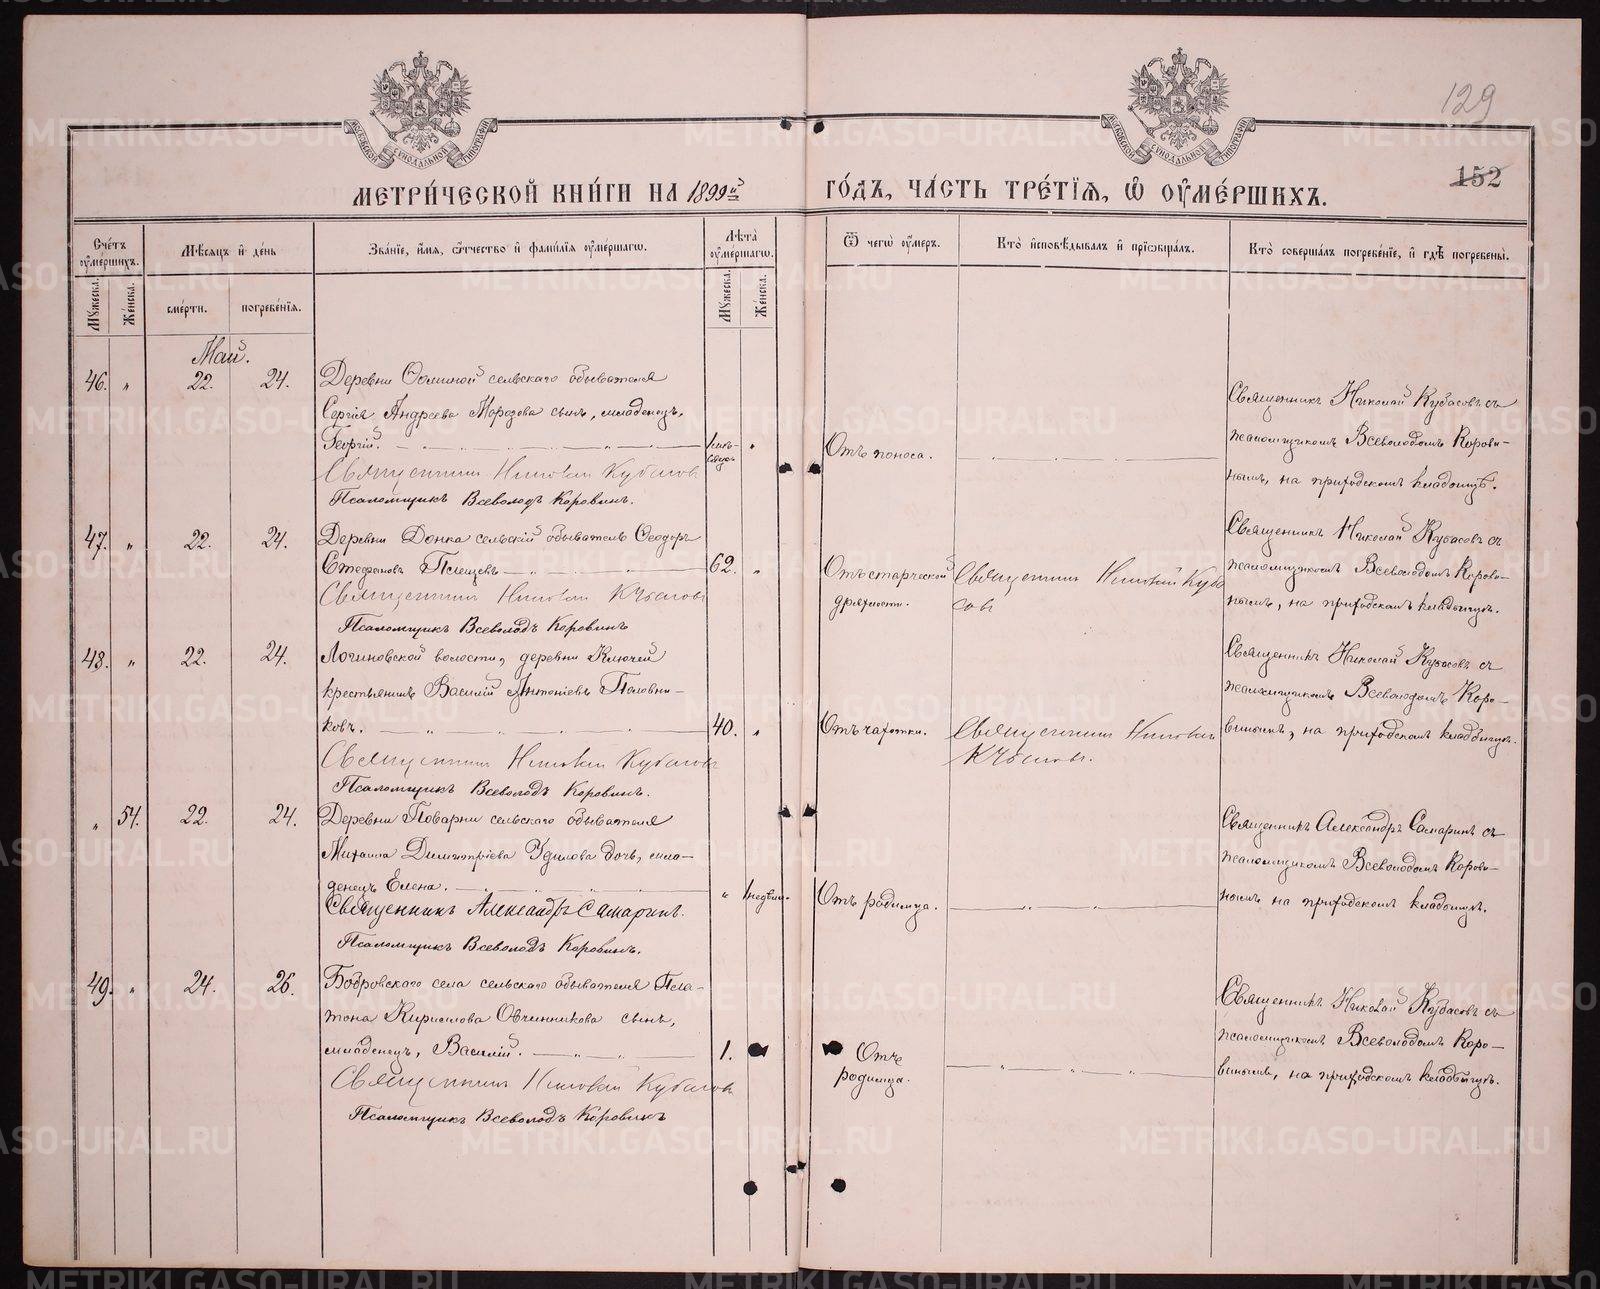 129
152
МОСКОВСКОЙ СѴНОДАЛЬНОЙ ТИПОГРАФІИ
МОСКОВСКОЙ СѴНОДАЛЬНОЙ ТИПОГРАФІИ
МЕТРИ́ЧЕСКОЙ КНИ́ГИ НА 1899й
ГО́ДЪ, ЧА́СТЬ ТРЕ́ТЇѦ, Ѡ҆ ОУ҆МЕ́РШИХЪ.
Сче́тъ оу҆ме́ршихъ.
Мꙋжеска.
Же́нска.
Мѣ́сѧцъ и҆ де́нь
сме́рти.
погребе́нїѧ.
Зва́нїе, и҆́мѧ, ѻ҆́тчество и҆ фами́лїѧ оу҆ме́ршагѡ.
Лѣ́та оу҆ме́ршагѡ.
Мꙋжеска.
Же́нска.
Ѿ чегѡ̀ оу҆́меръ.
Кто̀ и҆сповѣ́дывалъ и҆ прїѡбща́лъ.
Кто̀ соверша́лъ погребе́нїе, и҆ гдѣ̀ погребены̀.
Май.
46. „ 22. 24. Деревни Осминой сельскаго обывателя
Сергія Андреева Морозова сынъ, младенецъ,
Георгій.
Священникъ Николай Кубасовъ
Псаломщикъ Всеволодъ Коровинъ.
Отъ поноса.
Священникъ Николай Кубасовъ съ
псаломщикомъ Всеволодомъ Корови-
нымъ, на приходскомъ кладбищѣ.
47. „ 22. 24. Деревни Донка сельскій обыватель Ѳеодоръ
Стефановъ Плещевъ 62. „
Священникъ Николай Кубасовъ
Псаломщикъ Всеволодъ Коровинъ
Отъ старческой
дряхлости.
Священникъ Николай Куба
совъ
Священникъ Николай Кубасовъ съ
псаломщикомъ Всеволодомъ Корови-
нымъ, на приходскомъ кладбищѣ.
48. „ 22. 24. Логиновской волости, деревни Ключей
крестьянинъ Василій Антоніевъ Половни-
ковъ. 40. „
Священникъ Николай Кубасовъ
Псаломщикъ Всеволодъ Коровинъ.
Отъ чахотки.
Священникъ Николай
Кубасовъ.
Священникъ Николай Кубасовъ съ
псаломщикомъ Всеволодомъ Коро-
винымъ, на приходскомъ кладбищѣ.
„ 54. 22. 24. Деревни Поварни сельскаго обывателя
Михаила Димитріева Удилова дочь, мла-
денецъ Елена. „ 1 недѣли.
Священникъ Александръ Самаринъ.
Псаломщикъ Всеволодъ Коровинъ.
Отъ родимца.
Священникъ Александръ Самаринъ съ
псаломщикомъ Всеволодомъ Корови-
нымъ на приходскомъ кладбищѣ.
49. „ 24. 26. Бобровскаго села сельскаго обывателя Пла-
тона Кириллова Овчинникова сынъ,
младенецъ, Василій. 1.
Священникъ Николай Кубасовъ
Псаломщикъ Всеволодъ Коровинъ
Отъ
родимца.
Священникъ Николай Кубасовъ съ
псаломщикомъ Всеволодомъ Коро-
винымъ, на приходскомъ кладбищѣ.
METRIKI.GASO-URAL.RU